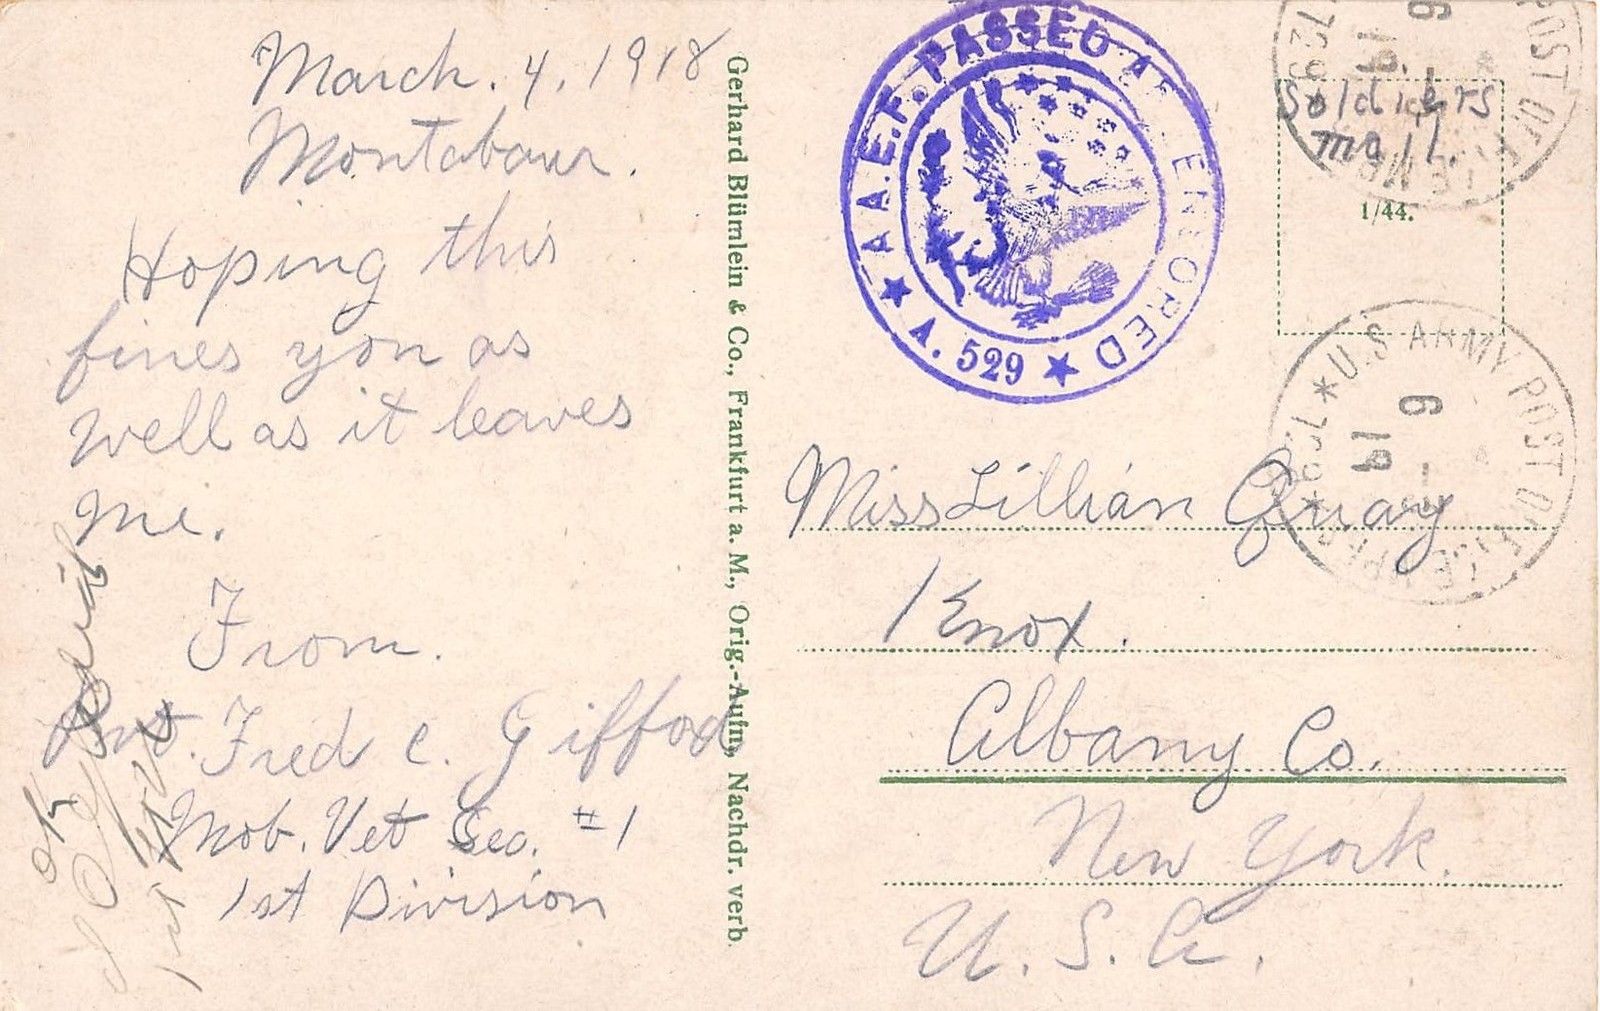 March. 4, 1918
Montabaur.
Hoping this
fines you as
well as it leaves
me.
From.
Pvt. Fred C. Gifford
Mob. Vet Sec. #1
1st Division
OK
1st
Gerhard Blümlein & Co., Frankfurt a. M., Orig.-Aufn, Nachdr. verb.
★ A.E.F. PASSED AS CENSORED ★
A. 529
POST OF
Soldiers
mail.
1/44.
* U.S. ARMY POST OFFICE *
6
19
Miss Lillian Quay
Knox.
Albany Co.
New York.
U. S. A.